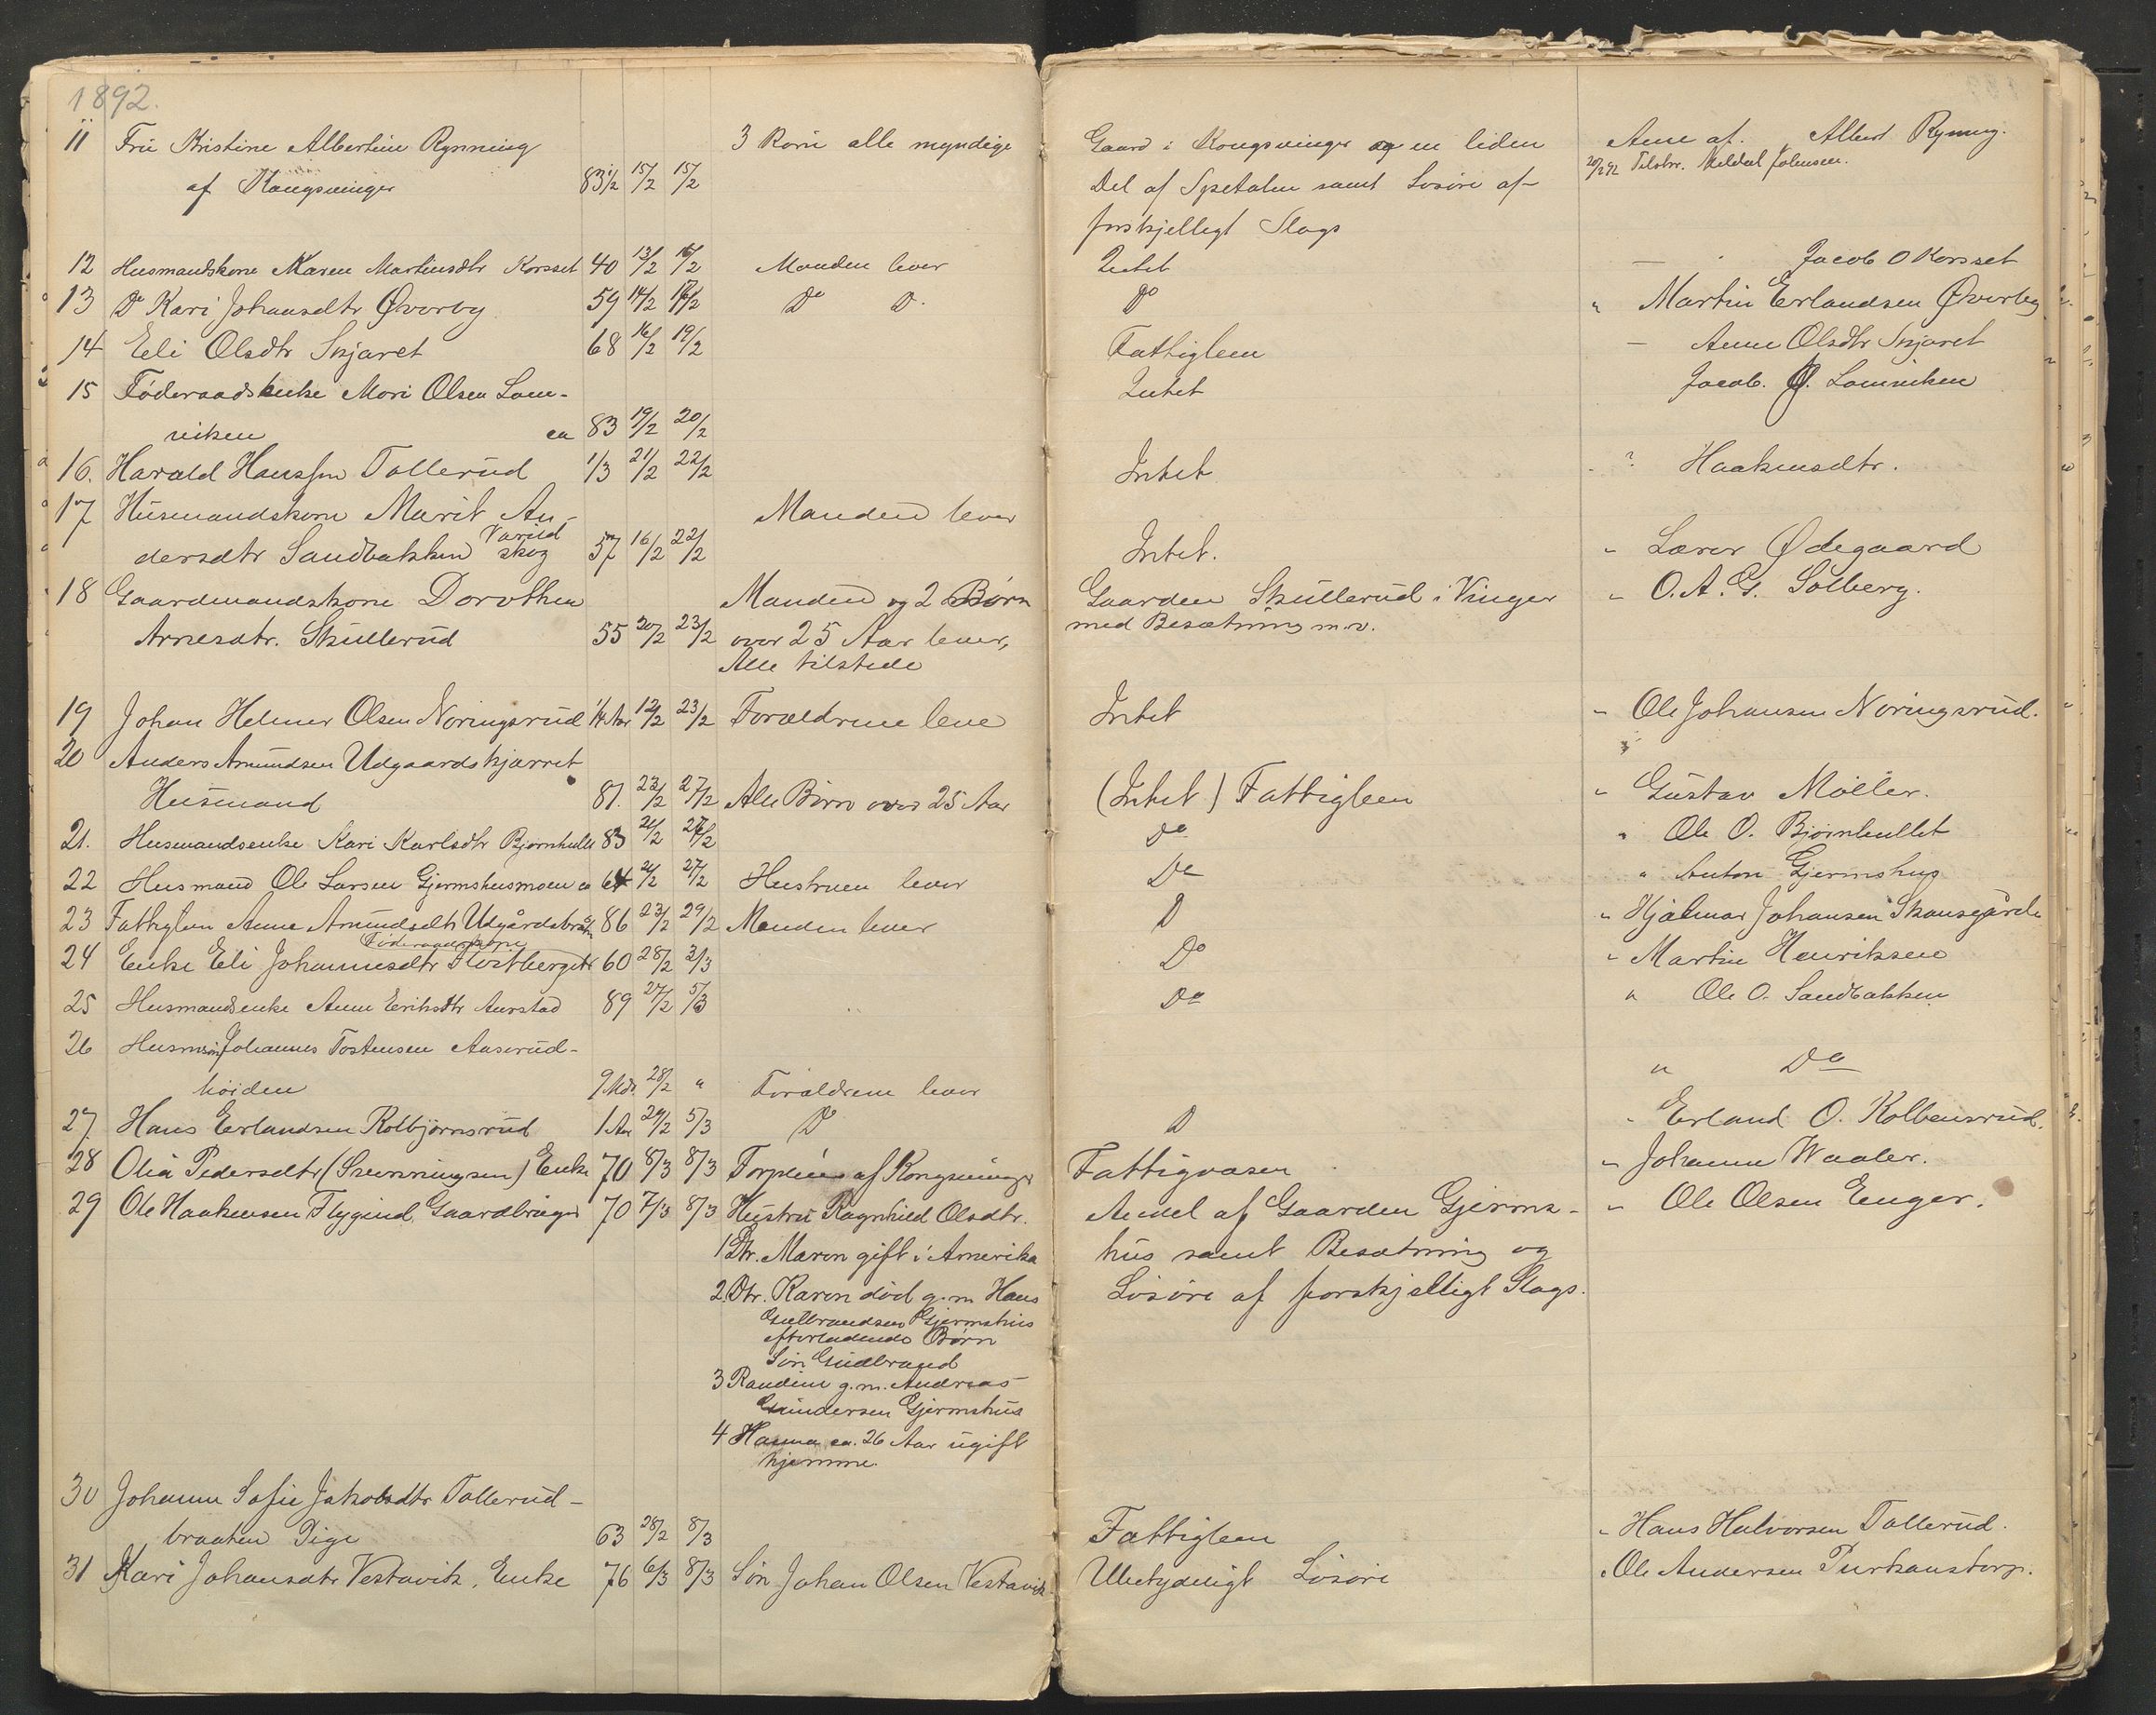 1892.
11 Fru Kristine Albertine Rynning 3 Børn alle myndige Gaard i Kongsvinger og en liden Anm af. Albert Rynning.
af Kongsvinger 83 1/2 15/2 15/2 Del af Spetalen samt Løsøre af 20/2 92 Tilskr. Johnsen.
forskjelligt Slags
12 Husmandskone Maren Martinsdtr Korsset 40 13/2 16/2 Manden lever Intet — Jacob O Korsset
13 Do Kari Johansdtr Øverby 59 14/2 Do D. Do " Martin Erlandsen Øverby
14 Eli Olsdtr Skjaret 68 16/2 19/2 Fattiglem — Anne Olsdtr Skjaret
15 Føderaadsenke Mari Olsen Lom- Intet Jacob. O. Lomviken
viken ca 83 19/2 20/2
16. Harald Hanssen Tollerud 1/3 21/2 22/2 Intet ? Haakensdtr.
17 Husmandskone Marit An- Manden lever
dersdtr Sandbakken Varild skog 57 16/2 22/2 Intet. " Lærer Ødegaard
18 Gaardmandskone Dorothea Manden og 2 Børn Gaarden Skullerud i Vinger " O. A. G. Solberg.
Arnesdtr. Skullerud 55 20/2 23/2 over 25 Aar lever, med Besætning m.v.
Alle tilstede
19 Johan Helmer Olsen Noringsrud 1/4 Aar 12/2 23/2 Forældrene leve Intet " Ole Johansen Noringsrud.
20 Anders Amundsen Udgaardskjærret
Husmand 81. 22/2 27/2 Alle Børn over 25 Aar (Intet) Fattiglem " Gustav Møller.
21. Husmandsenke Kari Karlsdtr Bjørnhullet 83 21/2 27/2 Do " Ole O. Bjørnhullet
22 Husmand Ole Larsen Gjermshusmoen ca 64 21/2 27/2 Hustruen lever Do " Anton Gjermshus
23 Fattiglem Anne Amundsdtr Udgårdsbråten 86 23/2 29/2 Manden lever D " Hjalmar Johansen Skansgårde
24 Enke Eli Johannesdtr 60 28/2 3/3 Do " Martin Henriksen
25 Husmandsenke Anne Eriksdtr Aurstad 89 27/2 5/3 Do " Ole O. Sandbakken
26 Husmsøn Johannes Tostensen Aaserud-
høiden 9 Mdr. 28/2 " Forældrene lever " Do
27. Hans Erlandsen Kolbjørnsrud 1 Aar 29/2 5/3 Do D " Erland O. Kolbensrud.
28 Olia Pedersdtr (Svenningsen) Enke 70 8/3 8/3 af Kongsvinger Fattigvæsen " Johanne Waaler.
29 Ole Haakensen Flygind Gaardbruger 70 7/3 8/3 Hustru Ragnhild Olsdtr. Andel af Gaarden Gjerms- " Ole Olsen Enger.
1 Dtr. Maren gift i Amerika hus samt Besætning og
2. Dtr. Karen død g. m. Hans Løsøre af forskjelligt Slags.
Gulbrandsen Gjermshus
efterladende Børn
Søn Gudbrand
3 Randine g. m. Andreas
Gundersen Gjermshus
4 Hanna ca. 26 Aar ugift
hjemme.
30 Johanne Sofie Jakobsdtr Tollerud-
braaten Pige 63 28/2 8/3 Fattiglem " Hans Halvorsen Tollerud.
31 Kari Johansdtr Vestavik, Enke 76 6/3 8/3 Søn Johan Olsen Vestavik Ubetydeligt Løsøre " Ole Andersen Purkanstorp.